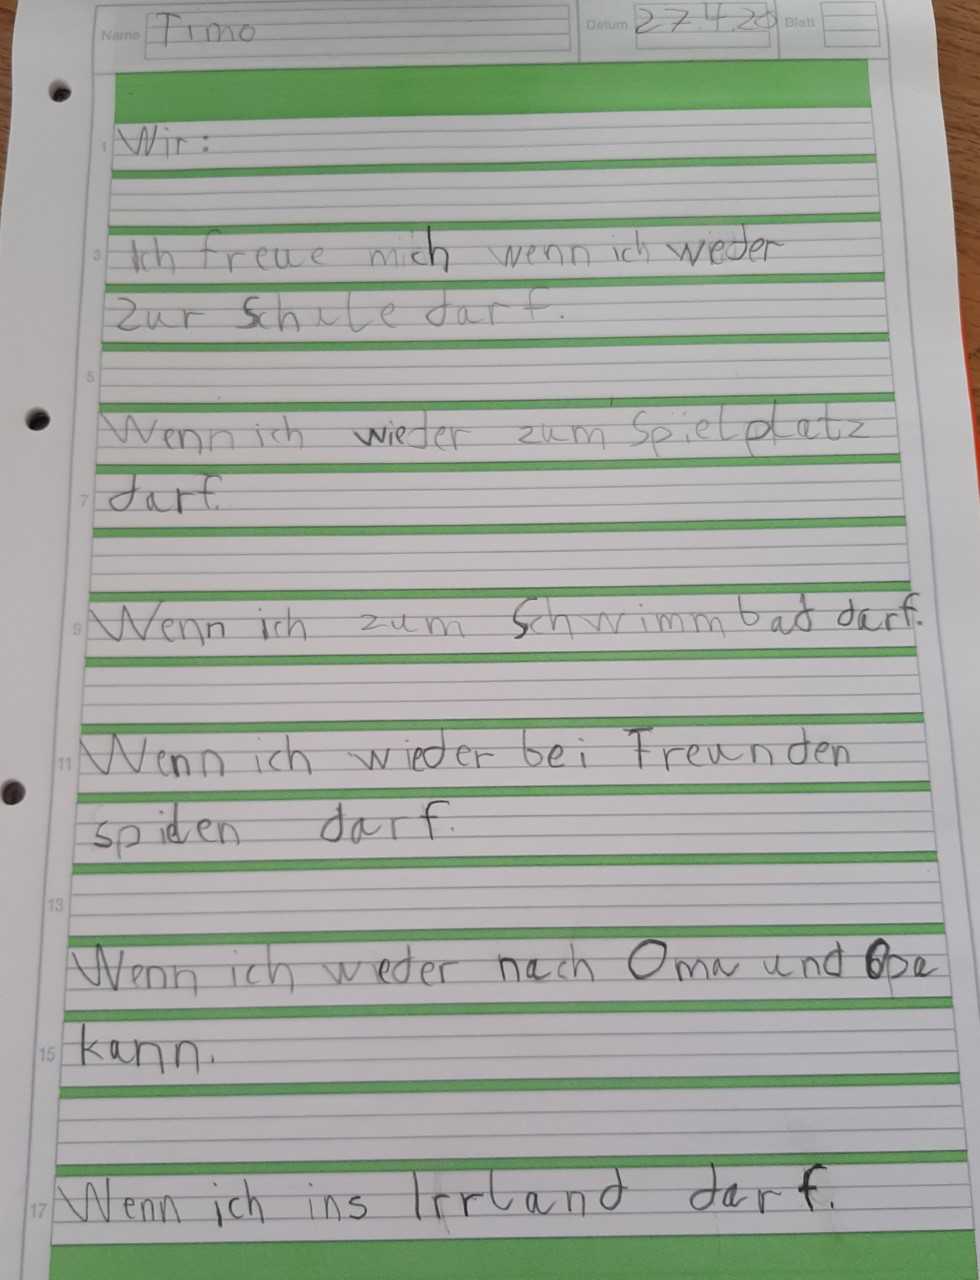 Name Timo Datum 27.4.20 Blatt
1 Wir:
3 Ich freue mich wenn ich weder
zur Schule darf.
5
Wenn ich wieder zum Spielplatz
7 darf.
9 Wenn ich zum Schwimmbad darf.
11 Wenn ich wieder bei Freunden
spielen darf.
13
Wenn ich weder nach Oma und Opa
15 kann.
17 Wenn ich ins Irrland darf.